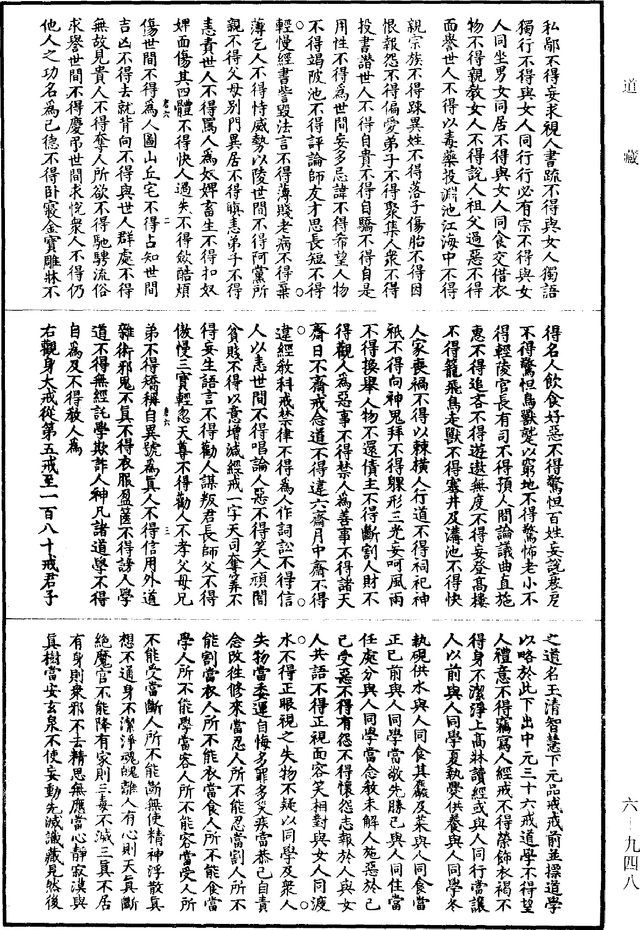 道藏
私鄙不得妄求視人書疏不得與女人獨語
獨行不得與女人同行行必有宗不得與女
人同坐男女同居不得與女人同食交借衣
物不得親教女人不得說人祖父過惡不得
面譽世人不得以毒藥投淵池江海中不得
親宗族不得踈異姓不得落子傷胎不得因
恨報怨不得偏愛弟子不得聚集人衆不得
投書譖世人不得自貴不得自驕不得自是
用性不得為世間妄多忌諱不得希望人物
不得竭陂池不得評論師友才思長短不得
輕慢經書訾毀法言不得薄賤老病不得棄
薄乞人不得恃威勢以陵世間不得阿黨所
親不得父母別門異居不得瞋恚弟子不得
恚責世人不得罵人為奴婢畜生不得扣奴
婢面傷其四體不得快人過失不得斂酷煩
傷世間不得為人圖山丘宅不得占知世間
二
吉凶不得去就背向不得與世人群處不得
無故見貴人不得奪人所欲不得馳騁流俗
求譽世間不得慶弔世間求悅衆人不得仍
他人之功名為己德不得卧寢金寶雕牀不
得名人飲食好惡不得驚怛百姓妄說災戾
不得驚怛鳥獸蹙以窮地不得驚怖老小不
得輕陵官長有司不得預人間論議曲直施
惠不得追吝不得遊遨無度不得妄登高樓
不得籠飛鳥走獸不得塞井及溝池不得快
人家喪禍不得以棘橫人行道不得祠祀神
祇不得向神鬼拜不得躶形三光妄呵風雨
不得換舉人物不還債主不得斷割人財不
得觀人為惡事不得禁人為善事不得諸天
齋日不齋戒念道不得違六齋月中齋不得
違經敎科戒禁律不得為人作詞訟不得信
人以恚世間不得唱論人惡不得笑人頑闇
貧賤不得以意增減經戒一字天司奪筭不
得妄生語言不得勸人謀叛君長師父不得
傲慢三寶輕忽天尊不得勸人不孝父母兄
弟不得矯稱自異號為眞人不得信用外道
三
雜術邪鬼不真不得衣服盈篋不得謗人學
道不得無經託學欺詐人神凡諸道學不得
自為及不得敎人為
右觀身大戒從第五戒至一百八十戒君子
之道名玉清智慧下元品戒戒前並標道學
以略於此下出中元三十六戒道學不得望
人禮意不得竊寫人經戒不得榮飾衣褐不
得身不潔淨上高牀讀經或與人同行當讓
人以前與人同學夏執㸑供養與人同學冬
執硯供水與人同食其麤及菜與人同食當
正己前與人同學當敬先勝己與人同住當
任處分與人同學當念敎未解人施惡於己
己受惡不得有怨不得懷怨志報於人與女
人共語不得正視面容笑相對與女人同渡
水不得正眼視之失物不疑以同學及衆人
失物當委運自悔多罪多災疾當恭己自責
念改往修來當忍人所不能忍當割人所不
能割當衣人所不能衣當食人所不能食當
學人所不能學當容人所不能容當受人所
不能受當斷人所不能斷無使精神浮散真
想不適身不潔淨魂魄離人有心則天真斷
絕魔官不能降有家則三毒不滅三真不居
有身則衆邪不去精思無應當心靜寂漠與
眞樹當安玄泉不使妄動先滅識藏見然後
六-九四八